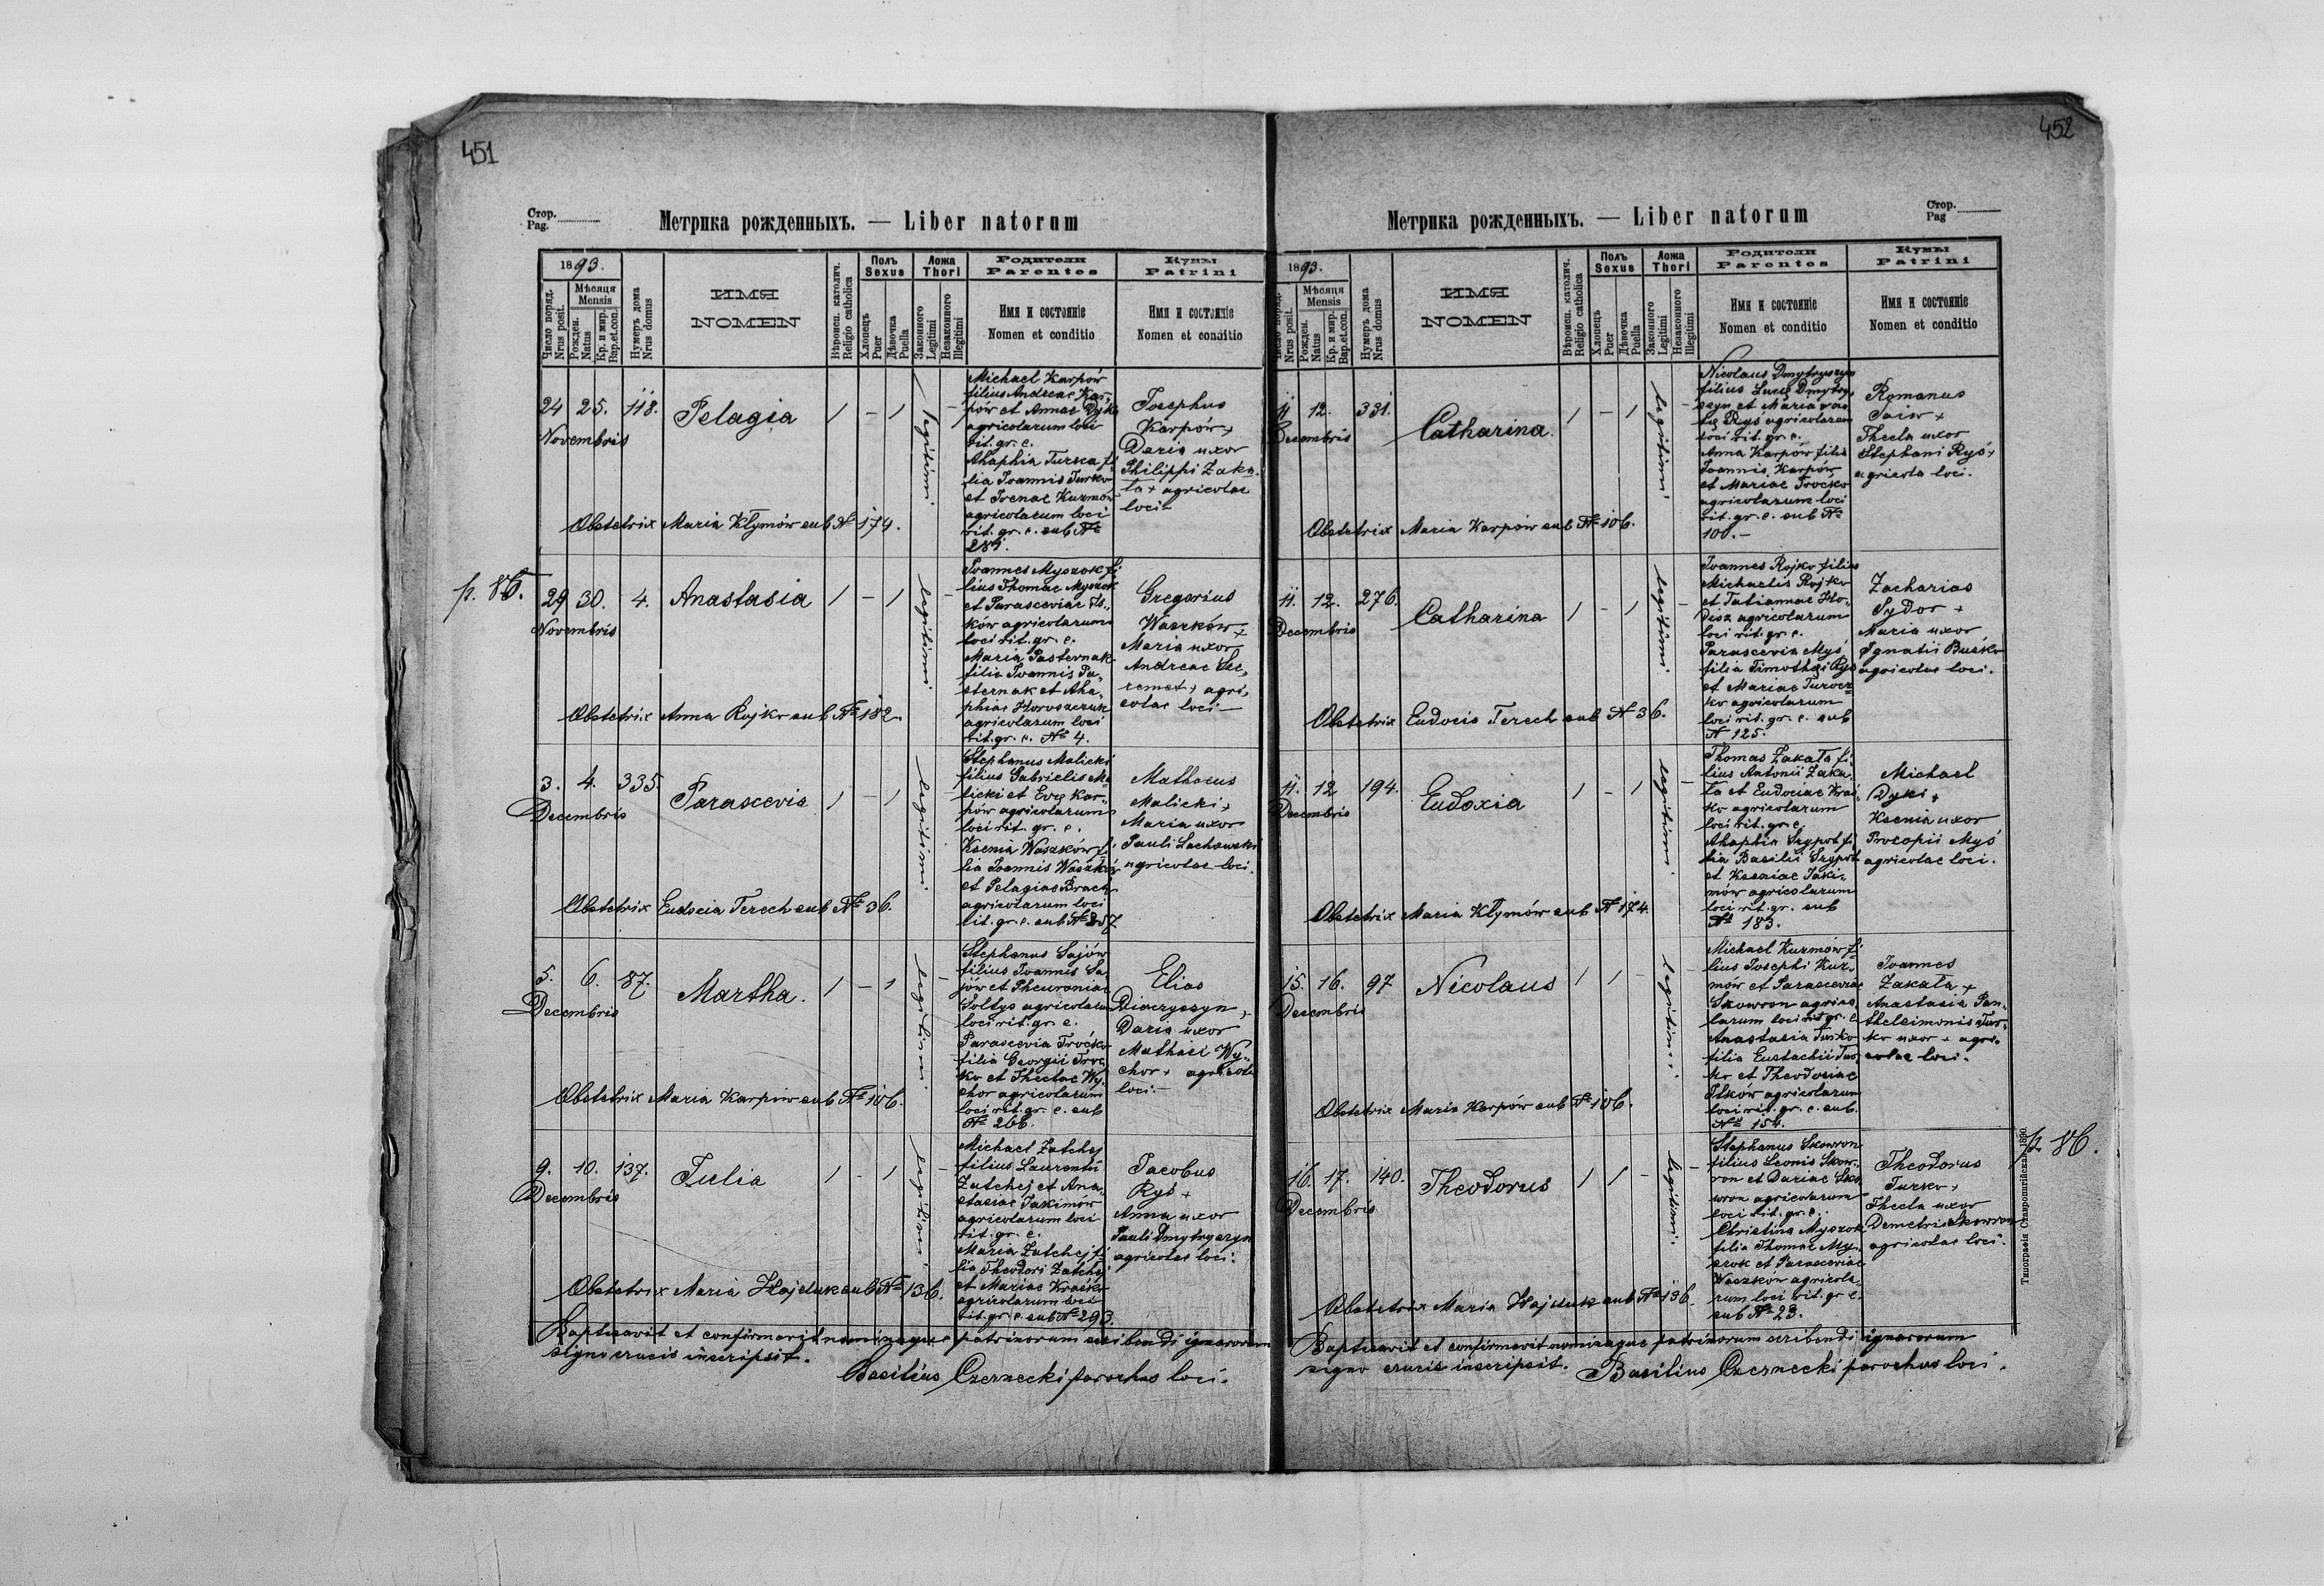 451
Стор.
Pag.
Метрика рожденныхъ. — Liber natorum
1893.
Число поряд.
Nrus posit.
Мѣсяця
Mensis
Рожден.
Natus
Кр. и мир.
Bap.et.con.
Нумеръ дома
Nrus domus
ИМЯ
NOMEN
Вѣроисп. католич.
Religio catholica
Полъ
Sexus
Хлопецъ
Puer
Дѣвочка
Puella
Ложа
Thori
Законного
Legitimi
Незаконного
Illegitimi
Родители
Parentes
Имя и состоянiе
Nomen et conditio
Кумы
Patrini
Имя и состоянiе
Nomen et conditio
24 25. 118. Pelagia 1 - 1 legitimi -
Novembris
Michael Karpów
filius Andreae Kar-
pów et Annae Dyki
agricolarum loci
rit. gr. c.
Ahaphia Turko fi-
lia Joannis Turko
et Irenae Kuzmów
agricolarum loci
rit. gr. c. sub №
281.
Josephus
Karpów +
Daria uxor
Philippi Zaka-
ła + agricolae
loci
Obstetrix Maria Kłymów sub № 174.
p. 86.
29 30. 4. Anastasia 1 - 1 legitimi -
Novembris
Joannes Myszok fi-
lius Thomae Myszok
et Parasceviae
ków agricolarum
loci rit. gr. c.
Maria Pasternak
filia Joannis Pa-
sternak et Aha-
phiae Horoszczuk
agricolarum loci
rit. gr. c. № 4.
Gregorius
Waszków +
Maria uxor
Andreae
+ agri-
colae loci
Obstetrix Anna Rojko sub № 182.
3. 4. 335. Parascevia 1 - 1 legitimi -
Decembris
Stephanus Malicki
filius Gabrielis Ma-
licki et Evę Kar-
pów agricolarum
loci rit. gr. c.
Ksenia Waszków fi-
lia Joannis Waszków
et Pelagiae Brach
agricolarum loci
rit. gr. c. sub № 257
Mathaeus
Malicki +
Maria uxor
Pauli Lachowski
agricolae loci.
Obstetrix Eudocia Terech sub № 36.
5. 6. 87. Martha. 1 - 1 legitimi -
Decembris
Stephanus Sajów
filius Joannis Sa-
jów et Pheuroniae
Soltys agricolarum
loci rit. gr. c.
Parascevia Troćko
filia Georgii Troć-
ko et Theclae Wy-
chor agricolarum
loci rit. gr. c. sub
№ 266.
Elias
Diaczyszyn +
Daria uxor
Mathiei Wy-
chor + agricolae
loci.
Obstetrix Maria Karpów sub № 106.
9. 10. 137. Julia 1 - 1 legitimi -
Decembris
Michael Zatchej
filius Laurentii
Zatchej et Ana-
stasiae Jakimów
agricolarum loci
rit. gr. c.
Maria Zatchej fi-
lia Theodori Zatchej
et Mariae Kraśko
agricolarum loci
rit. gr. c. sub № 293.
Jacobus
Ryś +
Anna uxor
Pauli Dmytryszyn
agricolae loci.
Obstetrix Maria Hajduk sub № 136.
Baptisavit et confirmavit nominaque patrinorum scribendi ignarorum
signo crucis inscripsit.
Basilius Czernecki parochus loci.
452
Стор.
Pag
Метрика рожденныхъ. — Liber natorum
1893.
Число поряд.
Nrus posit.
Мѣсяця
Mensis
Рожден.
Natus
Кр. и мир.
Bap.et.con.
Нумеръ дома
Nrus domus
ИМЯ
NOMEN
Вѣроисп. католич.
Religio catholica
Полъ
Sexus
Хлопецъ
Puer
Дѣвочка
Puella
Ложа
Thori
Законного
Legitimi
Незаконного
Illegitimi
Родители
Parentes
Имя и состоянiе
Nomen et conditio
Кумы
Patrini
Имя и состоянiе
Nomen et conditio
11 12. 331. Catharina. 1 - 1 legitimi -
Decembris
Nicolaus Dmytryszyn
filius Lucę Dmytry-
szyn et Maria
Ryś agricolarum
loci rit. gr. c.
Anna Karpów filia
Joannis Karpów
et Mariae Troćko
agricolarum loci
rit. gr. c. sub №
100.-
Romanus
+
Thecla uxor
Stephani Ryś +
agricola loci.
Obstetrix Maria Karpów sub № 106.
11. 12. 276. Catharina 1 - 1 legitimi -
Decembris
Joannes Rojko filius
Michaelis Rojko
et Tatiannae Ho-
disz agricolarum
loci rit. gr. c.
Parascevia Myś
filia Timothei Ryś
et Mariae
ko agricolarum
loci rit. gr. c. sub
№ 125.
Zacharias
Sydor +
Maria uxor
Ignatii Buśko
agricolae loci.
Obstetrix Eudocia Terech sub № 36.
11. 12 194. Eudoxia 1 - 1 legitimi -
Decembris
Thomas Zakała fi-
lius Antonii Zaka-
ła et Eudociae Kraś-
ko agricolarum
loci rit. gr. c.
Ahaphia Szypot fi-
lia Basilii Szypot
et Kseniae Jaki-
mów agricolarum
loci rit. gr. sub
№ 183.
Michael
Dyki +
Ksenia uxor
Procopii Myś
agricolae loci.
Obstetrix Maria Kłymów sub № 174.
15. 16. 97 Nicolaus 1 1 - legitimi -
Decembris
Michael Kuzmów fi-
lius Josephi Kuz-
mów et Parasceviae
Skowron agrico-
larum loci rit gr. c
Anastasia Turko
filia Eustachii Tur-
ko et Theodosiae
Itków agricolarum
loci rit. gr. c. sub
№ 154.
Joannes
Zakała +
Anastasia Pan-
theleimonis Tur-
ko uxor + agri-
colae loci.
Obstetrix Maria Karpów sub № 106.
16. 17. 140. Theodorus 1 1 - legitimi -
Decembris
Stephanus Skowron
filius Leonis Skow-
ron et Dariae Sko-
wron agricolarum
loci rit. gr. c.
Christina Myszok
filia Thomae My-
szok et Parasceviae
Waszków agricola-
rum loci rit. gr c.
sub № 23.
Theodorus
Turko +
Thecla uxor
Demetrii Skowron
agricolae loci.
Obstetrix Maria Hajduk sub № 136.
p. 86.
Baptisavit et confirmavit nominaque patrinorum scribendi ignarorum
signo crucis inscripsit. Basilius Czernecki parochus loci.
Типографія Ставропигійская 1890.